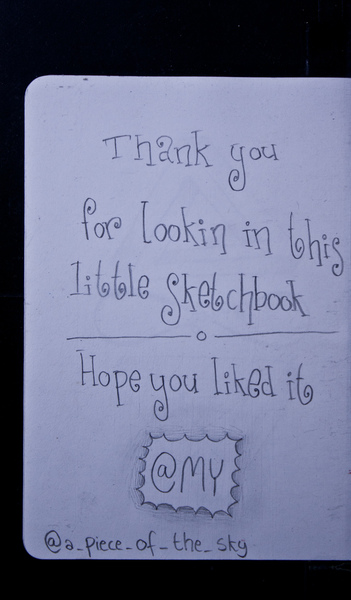 Thank you
for lookin in this
little sketchbook
Hope you liked it
@MY
@a_piece_of_the_sky